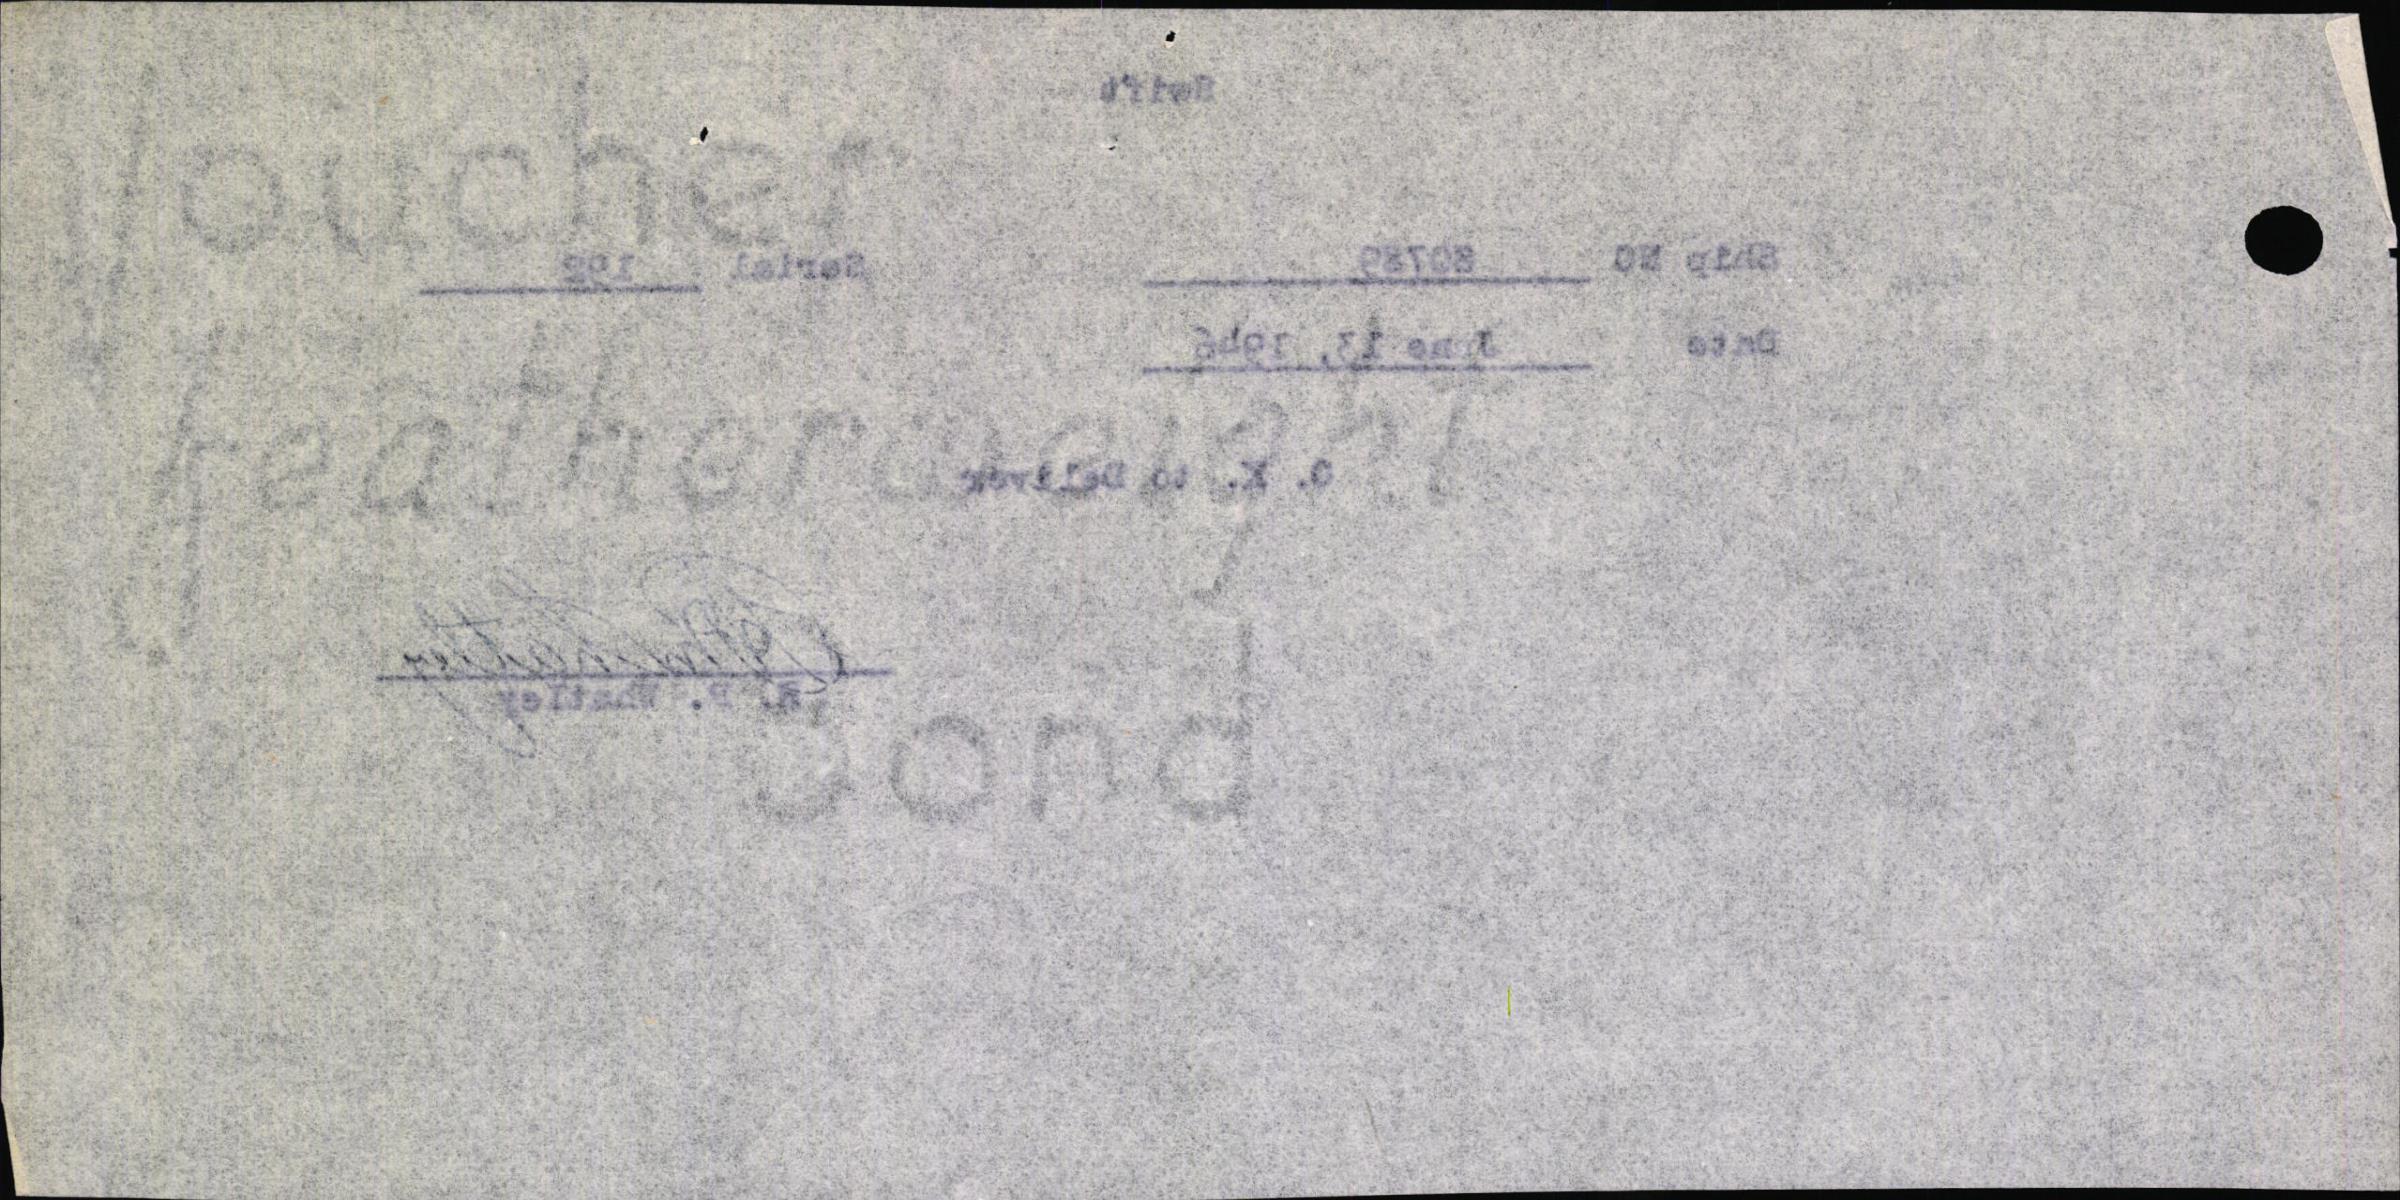 Swift
Voucher
Ship NC 80789 Serial 192
Date June 13, 1946
featherweight
O. K. to Deliver
R. P. Whatley
bond